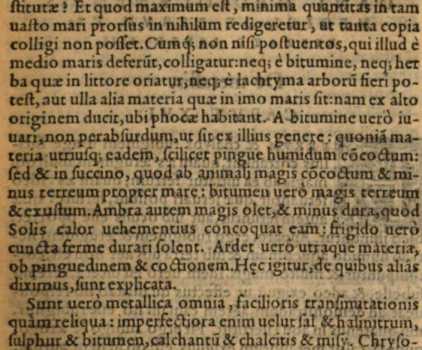 stitutæ? Et quod maximum est, minima quantitas in tam
uasto mari prorsus in nihilum redigeretur, ut tanta copia
colligi non posset. Cumq́; non nisi post uentos, qui illud è
medio maris deferūt, colligatur: neq; è bitumine, neq; her
ba quæ in littore oriatur, neq; è lachryma arborū fieri po-
test, aut ulla alia materia quæ in imo maris sit: nam ex alto
originem ducit, ubi phocæ habitant. A bitumine uerò iu-
uari, non perabsurdum, ut sit ex illius genere: quoniā ma-
teria utriusq; eadem, scilicet pingue humidum cōcoctum:
sed & in succino, quod ab animali magis cōcoctum & mi-
nus terreum propter mare: bitumen uerò magis terreum
& exustum. Ambra autem magis olet, & minus dura, quòd
Solis calor uehementius concoquat eam: frigido uerò
cuncta ferme durari solent. Ardet uerò utraque materia,
ob pinguedinem & coctionem. Hęc igitur, de quibus aliàs
diximus, sunt explicata.
Sunt uerò metallica omnia, facilioris transmutationis
quàm reliqua: imperfectiora enim uelut sal & halinitrum,
sulphur & bitumen, calchantū & chalcitis & misy. Chryso-